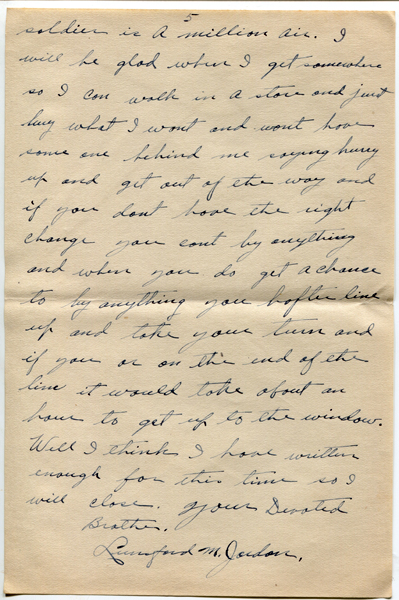 5
soldier is a million air. I
will be glad when I get somewhere
so I can walk in a store and just
buy what I want and wont have
some one behind me saying hurry
up and get out of the way and
if you dont have the right
change you cant by anything
and when you do get a chance
to by anything you hafter line
up and take your turn and
if you or on the end of the
line it would take about an
hour to get up to the window.
Well I think I have written
enough for this time so I
will close. Your Devoted
Brother.
Lunsford M. Jordan.